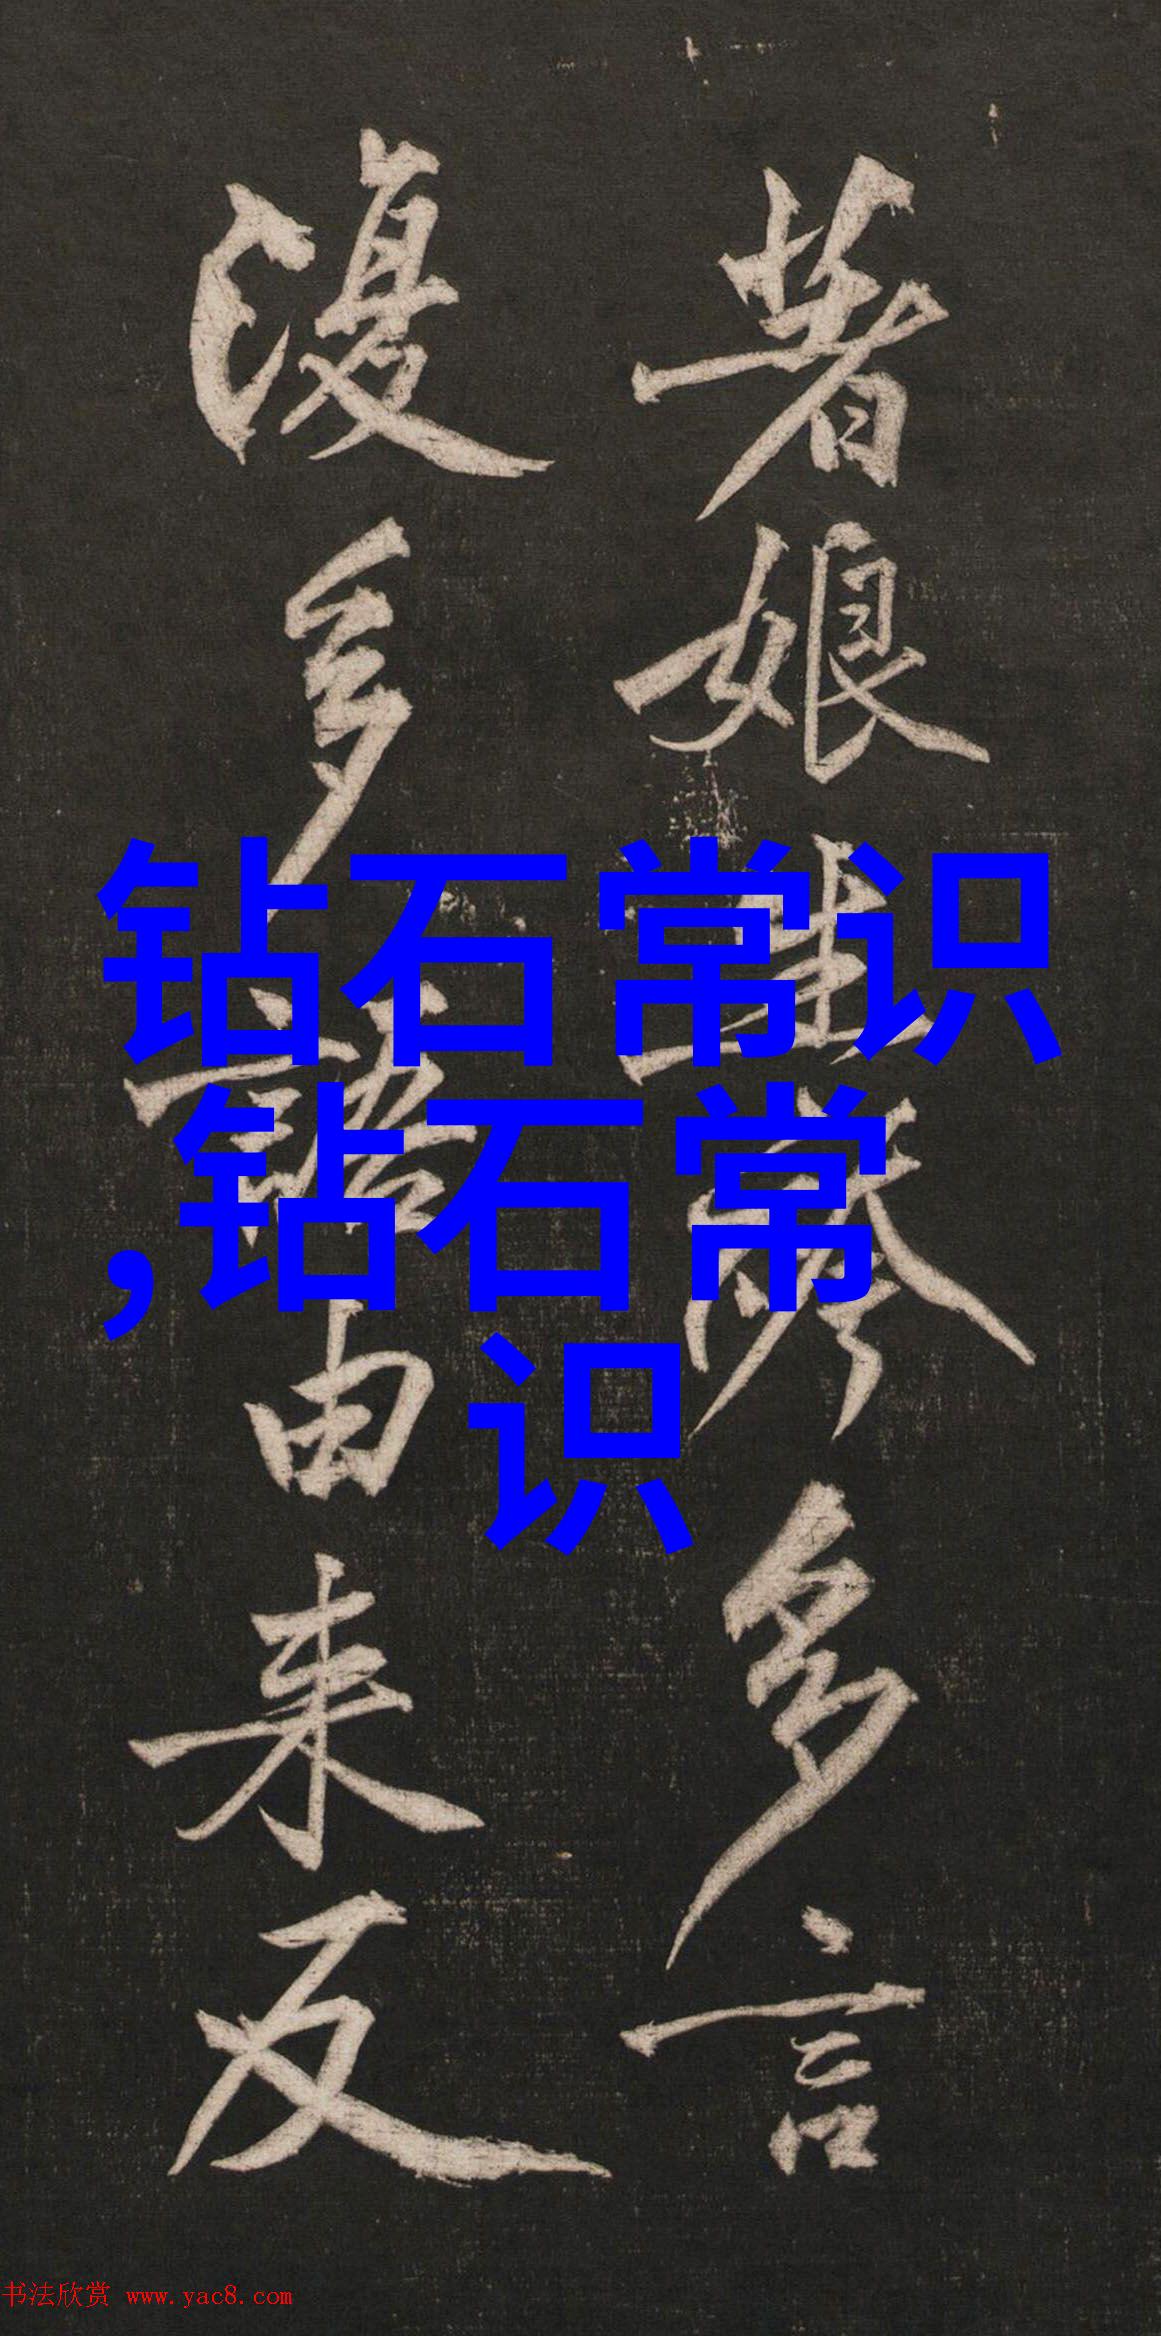 著娘生帶多言
復多語由来反
钻石常识
,钻石常
识
书法欣赏 www.yac8.com